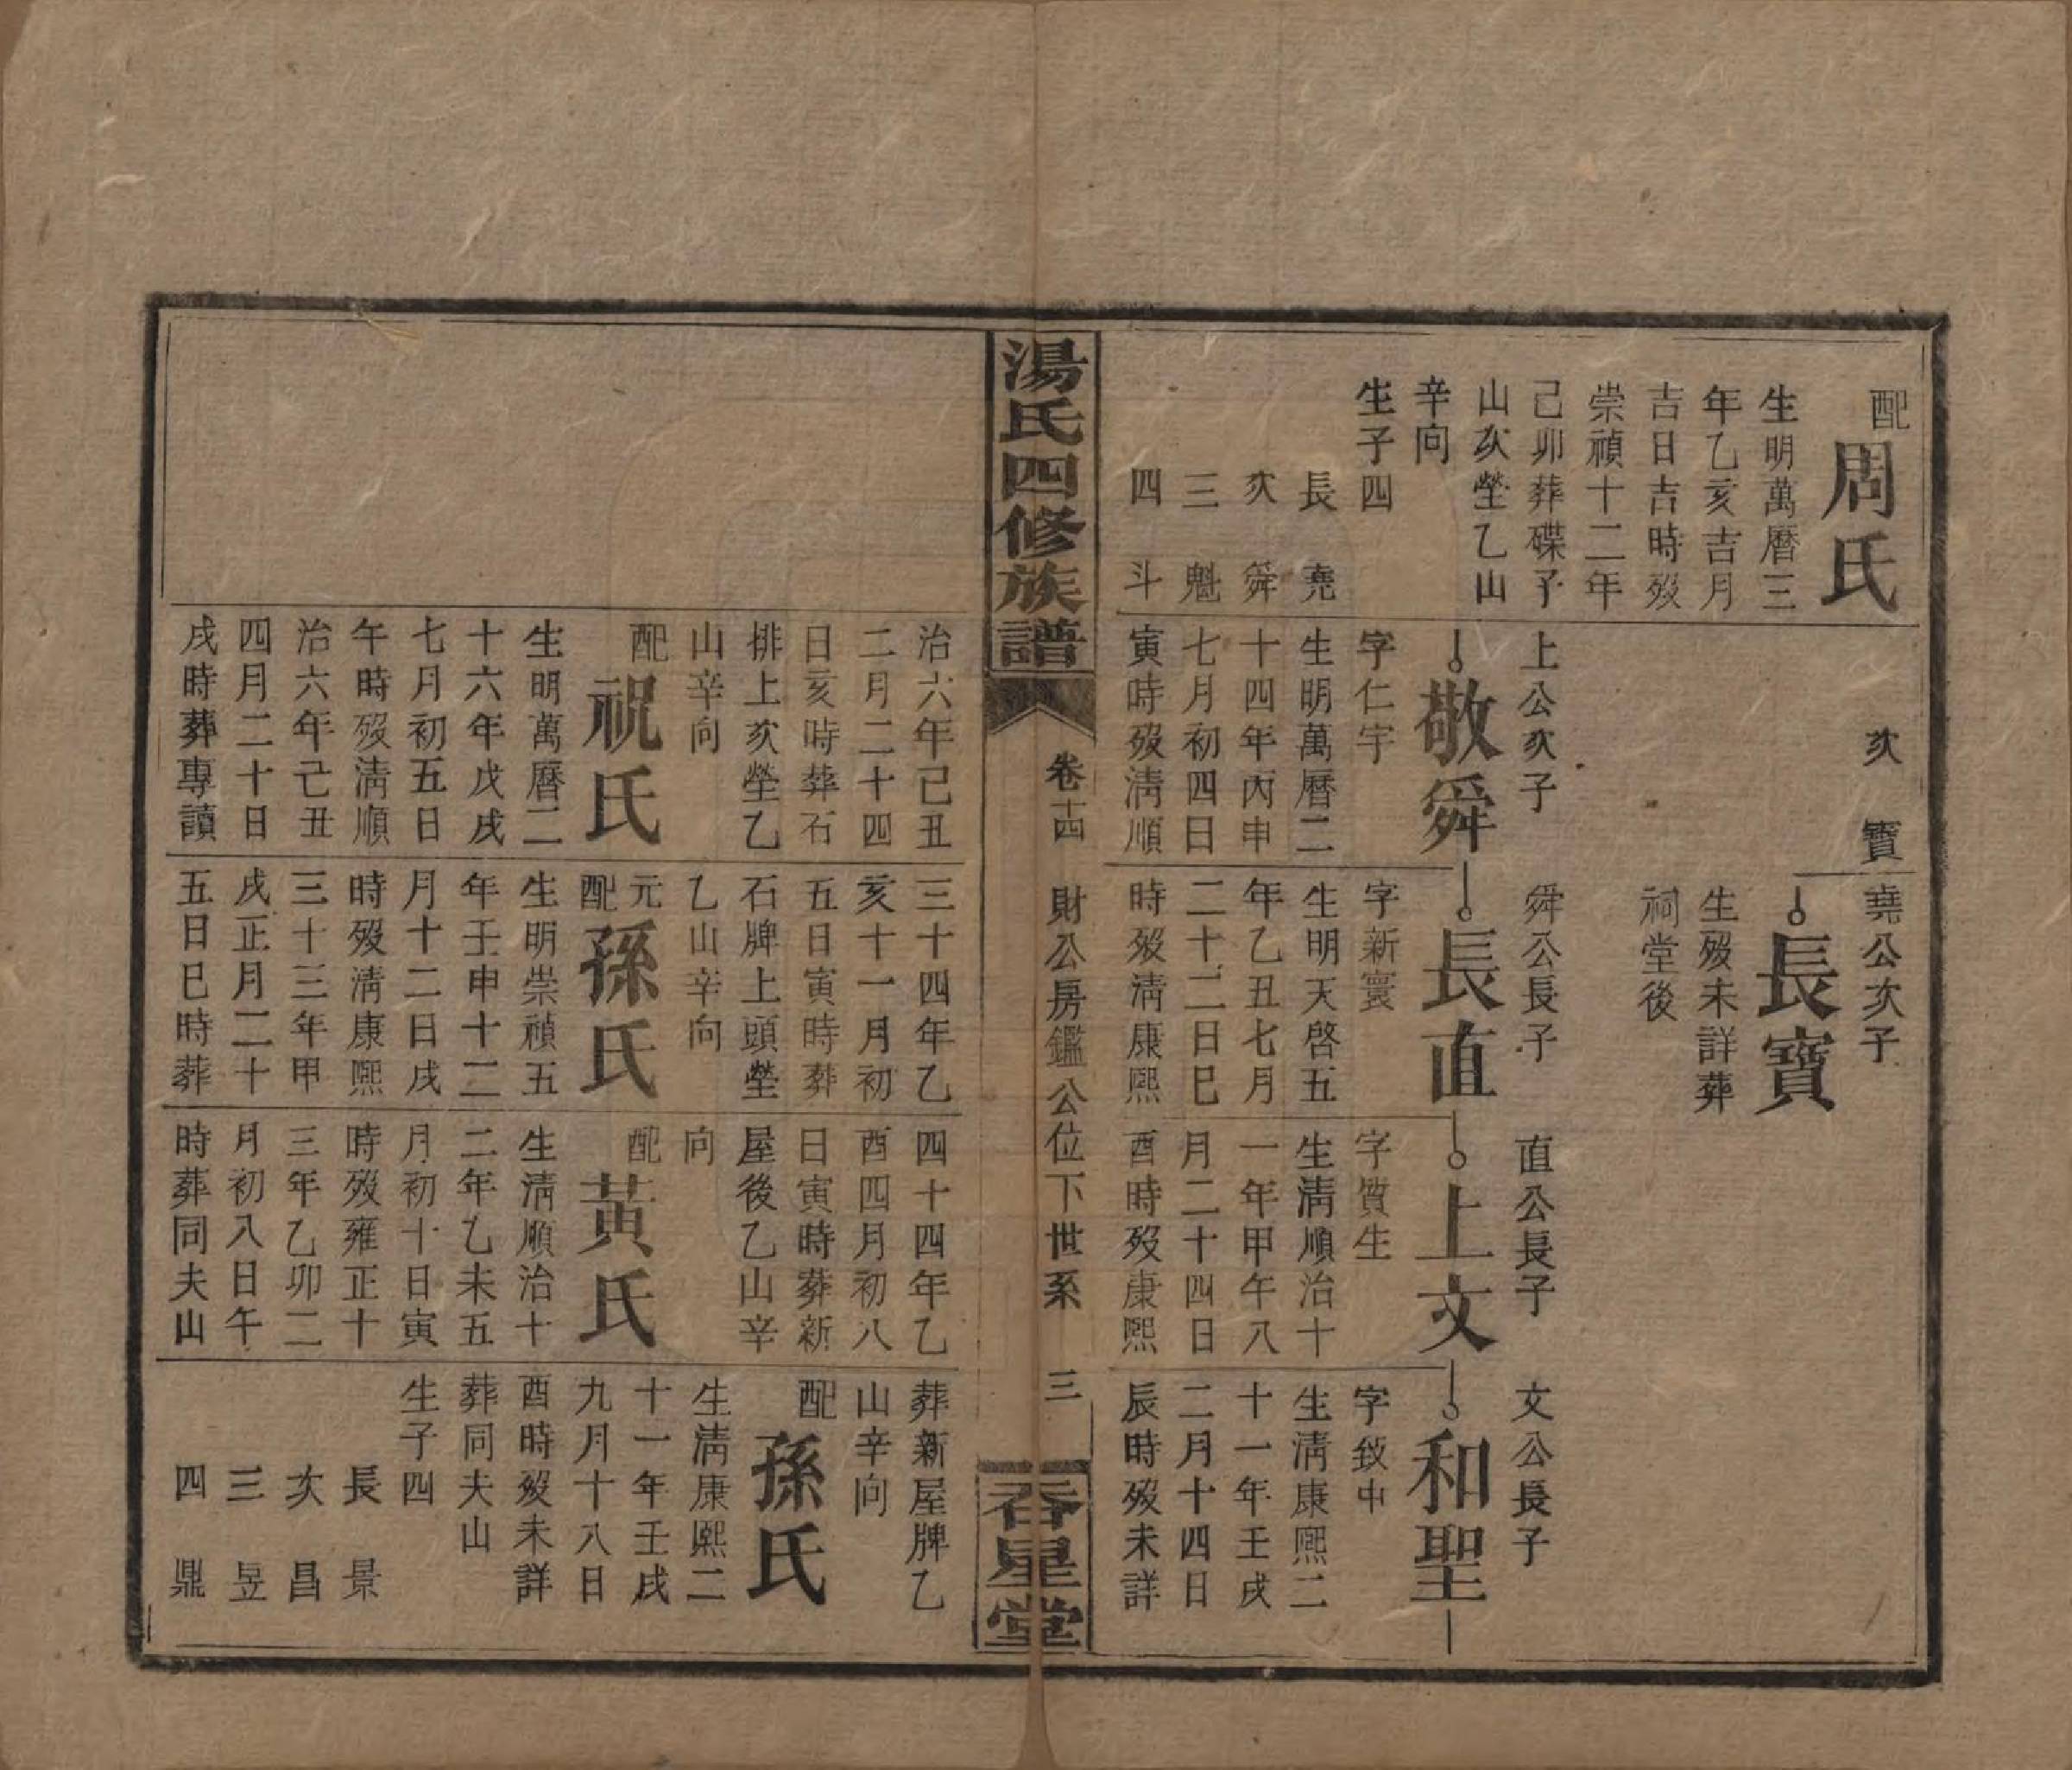 配周氏
生明萬曆三
年乙亥吉月
吉日吉時歿
崇禎十二年
己卯葬碟子
山亥塋乙山
辛向
生子四
長堯
次舜
三魁
四斗
次寶
上公次子
敬舜
字仁宇
生明萬曆二
十四年丙申
七月初四日
寅時歿淸順
堯公次子
長寶
生歿未詳葬
祠堂後
舜公長子
長直
字新寰
生明天啓五
年乙丑七月
二十二日巳
時歿淸康熙
直公長子
上文
字質生
生淸順治十
一年甲午八
月二十四日
酉時歿康熙
文公長子
和聖
字致中
生淸康熙二
十一年壬戌
二月十四日
辰時歿未詳
湯氏四修族譜
卷十四
財公房鑑公位下世系
三
吞星堂
治六年己丑
二月二十四
日亥時葬石
排上亥塋乙
山辛向
配祝氏
生明萬曆二
十六年戊戌
七月初五日
午時歿淸順
治六年己丑
四月二十日
戌時葬專讀
三十四年乙
亥十一月初
五日寅時葬
石牌上頭塋
乙山辛向
元配孫氏
生明崇禎五
年壬申十二
月十二日戌
時歿淸康熙
三十三年甲
戌正月二十
五日巳時葬
四十四年乙
酉四月初八
日寅時葬新
屋後乙山辛
向
配黃氏
生淸順治十
二年乙未五
月初十日寅
時歿雍正十
三年乙卯二
月初八日午
時葬同夫山
葬新屋牌乙
山辛向
配孫氏
生淸康熙二
十一年壬戌
九月十八日
酉時歿未詳
葬同夫山
生子四
長景
次昌
三昱
四鼎